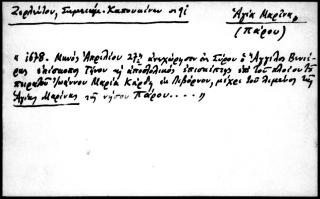 Ζερλέντου, Σύμμεικτα. Καπουκίνων σελ.
Ἁγία Μαρίνα,
(Πάρου)
" 1678. Μηνὸς Ἀπριλίου 27ῃ ἀνεχώρησεν ἐκ Σύρου ὁ Ἄγγελος Βενιέ-
ρης ἐπίσκοπος Τήνου καὶ ἀποστολικὸς ἐπισκέπτης ἐπὶ τοῦ πλοίου τοῦ
πειρατοῦ Ἰωάννου Μαρία Κάρδη ἐκ Λιβόρνου, μέχρι τοῦ λιμένος τῆς
Ἁγίας Μαρίνας τῆς νήσου Πάρου.... "